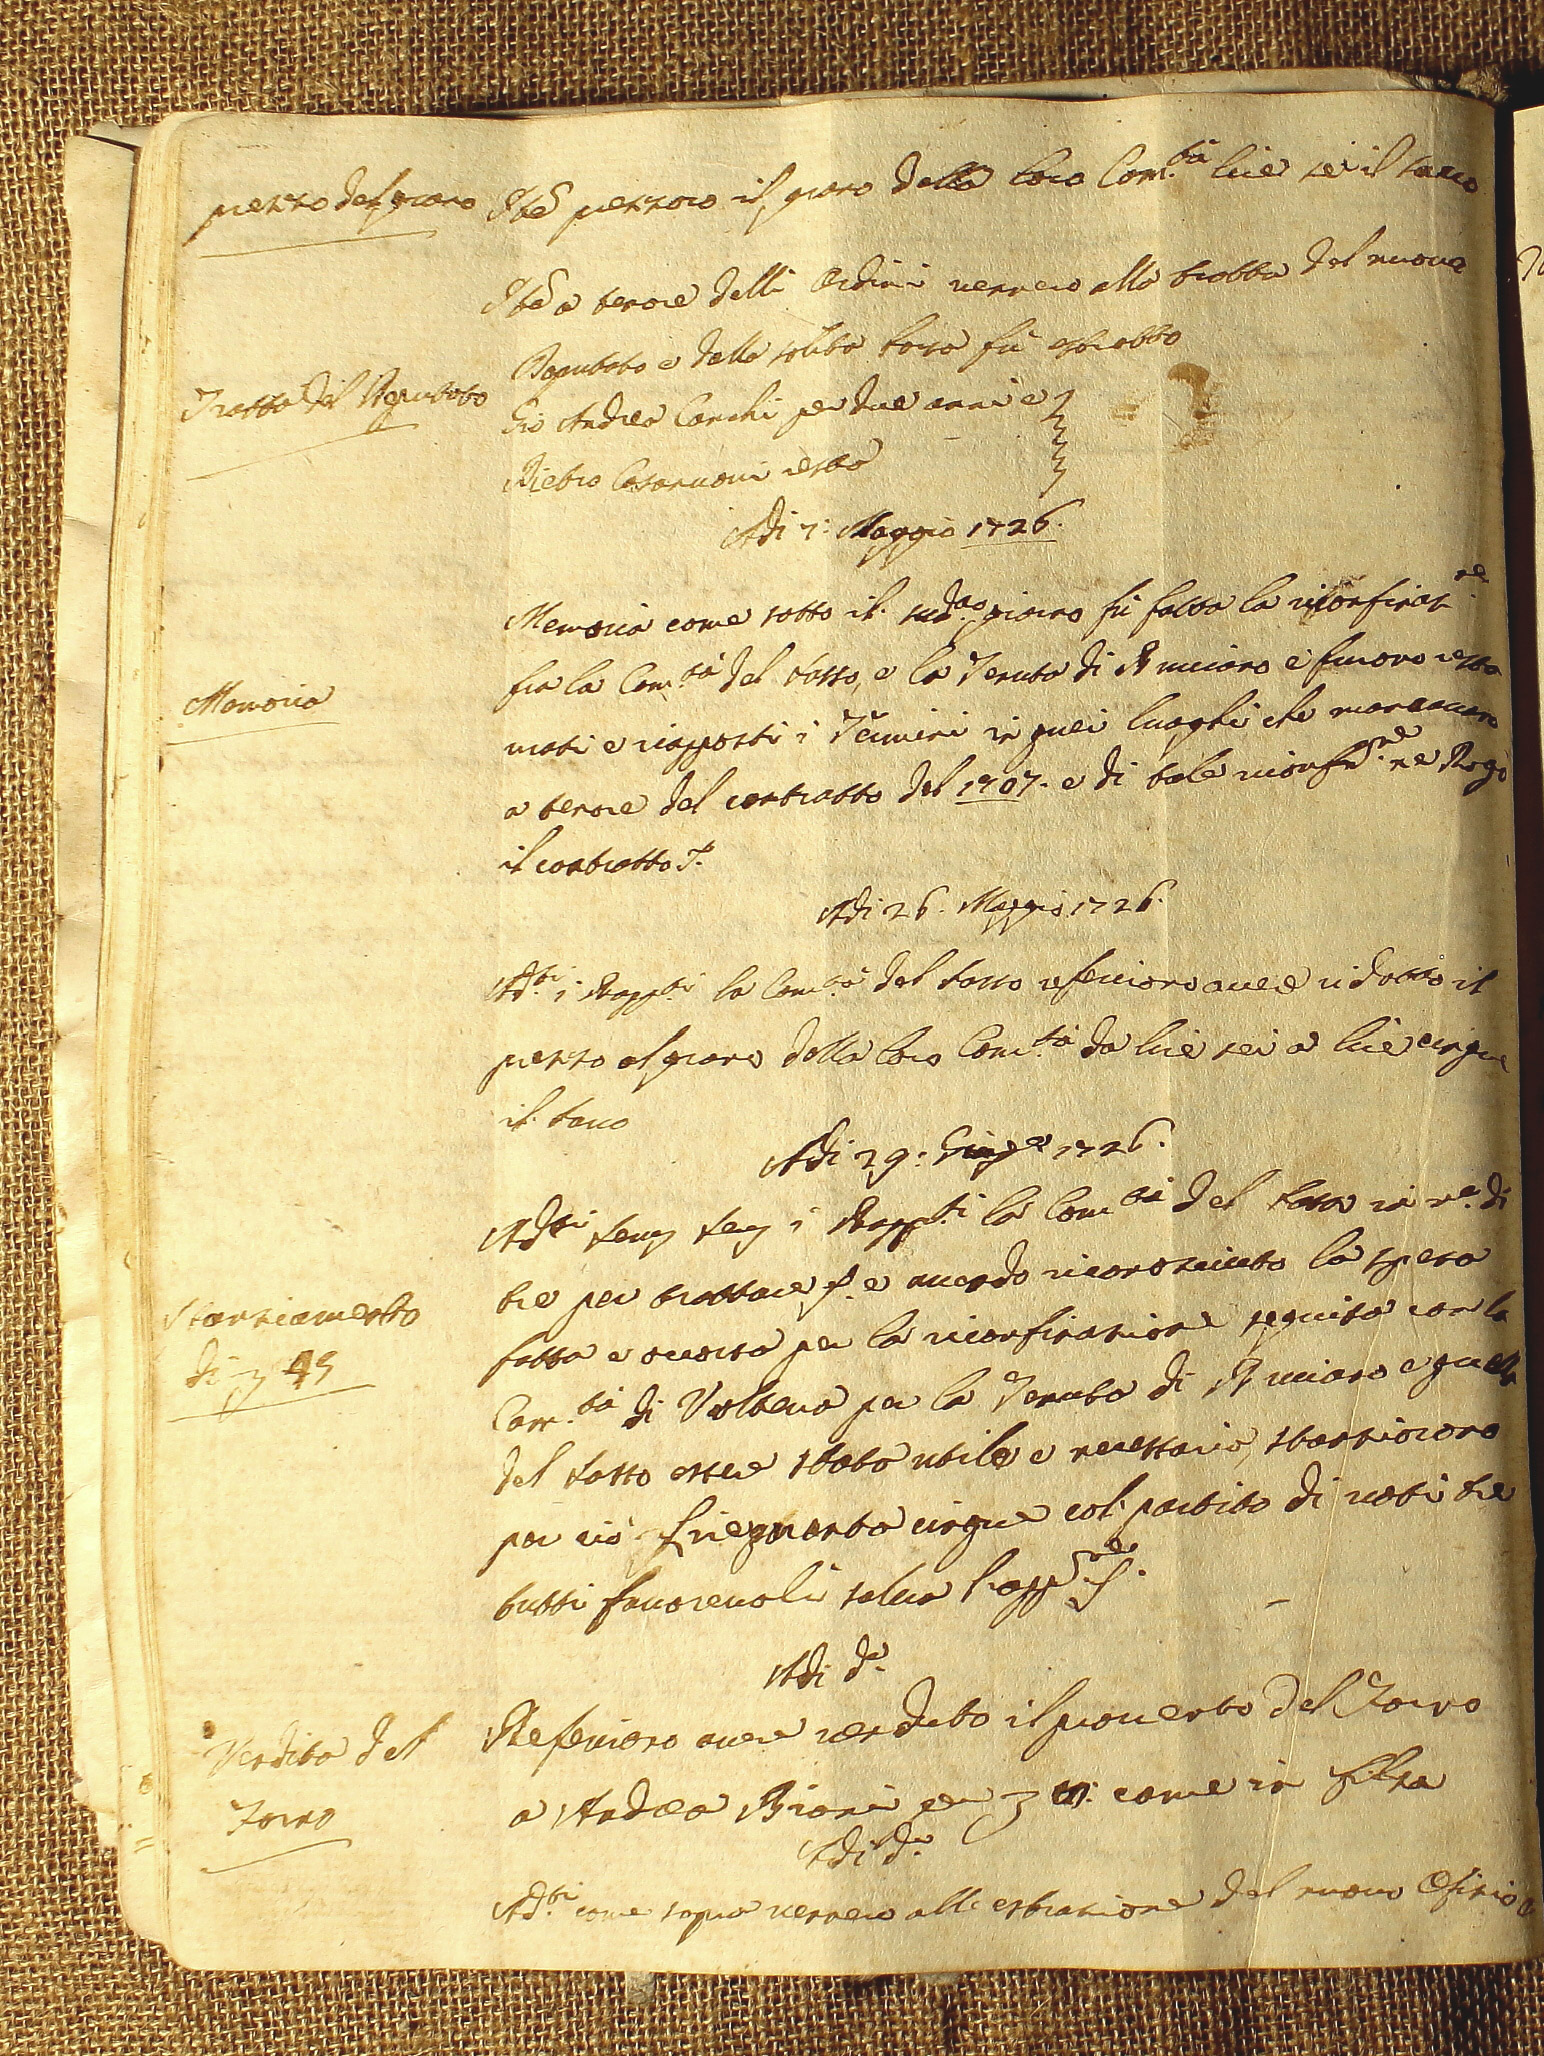 prezzo del grano
Ite prezzoro il grano della loro Com.tà lire sei il sacco
Ite a tenore delli Ordini vennero alla tratta del nuovo
Tratta del Deputato
Deputato e dalla solita borsa fù estratto
Gio Andrea Conchi per due anni e
Pietro Cesarmoni resta
Adi 7: Maggio 1726.
Memoria
Memoria come sotto il sud.o giorno fù fatta la riconfinaz.ne
fra la Com.tà del Sasso, e la Tenuta di e furono
mati e riapposti i Termini in quei luoghi che mancavano
a tenore del contratto del 1707. e di tale riconf.ne ne Rogò
il contratto
Adi 26. Maggio 1726.
Ad.ti i Rapp.ti la Com.tà del Sasso referirono avere ridotto il
prezzo al grano della loro Com.tà da lire sei a lire cinque
il sacco
Adi 29: Giug.o 1726.
Ad.ti i Rapp.ti la Com.tà del Sasso in n.o di
tre per trattare e avendo riconosciuto la spesa
Stanziamento
di 45
fatta e occorsa per la riconfinazione seguita con la
Com.tà di Volterra per la Tenuta di e quella
del Sasso essere stata utile e necessario, stanziorono
per ciò lire quaranta cinque col partito di voti tre
tutti favorevoli salva l'app.ne
Adi d.o
Vendita del
Toro
Referirono avere venduto il proverto del Toro
a Andrea Biani per come in filza
Adi d.o
Ad.ti come sopra vennero alla estrazione del nuovo Ofizio